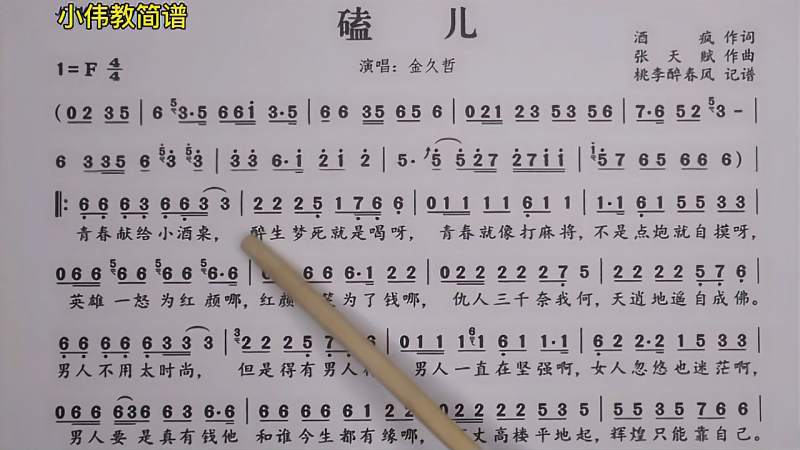 小伟教简谱
磕 儿
酒 疯 作词
1=F 4/4
演唱：金久哲
张 天 赋 作曲
桃李醉春风 记谱
(0 2 3 5 | 6 5 3·5 6 6 i 3·5 | 6 6 3 5 6 5 6 | 0 2 1 2 3 5 3 5 6 | 7·6 5 2 5 3 - |
6 3 3 5 6 5 3 5 3 | 3 3 6·i 2 i 2 | 5· 5 5 2 7 2 7 i i | 5 7 6 5 6 6 6 ) |
‖: 6 6 6 3 6 6 3 3 | 2 2 2 5 1 7 6 6 | 0 1 1 1 1 6 1 1 | 1·1 6 1 5 5 3 3 |
青春献给小酒桌， 醉生梦死就是喝呀， 青春就像打麻将，不是点炮就自摸呀，
0 6 6 5 6 6 5 6 6 5 6·6 | 0 6 6 6 6 6·1 2 2 | 0 2 2 2 2 2 7 5 | 2 2 2 2 7 5 6 6 |
英雄一怒为红颜哪，红颜 为了钱哪， 仇人三千奈我何，天逍地遥自成佛。
6 6 6 3 6 6 3 3 | 3 2 2 2 5 6 6 | 0 1 1 1 6 1 1·1 | 6 2 2·2 1 5 3 3 |
男人不用太时尚， 但是得有男人 男人一直在坚强啊，女人忽悠也迷茫啊，
0 6 6 6 3 6 6 3 6·6 | 0 6 6 6 6 6·1 2 2 | 0 2 2 2 2 2 7 5 | 5 2 2 2 7 5 6 6
男人要是真有钱他 和谁今生都有缘哪， 丈高楼平地起，辉煌只能靠自己。